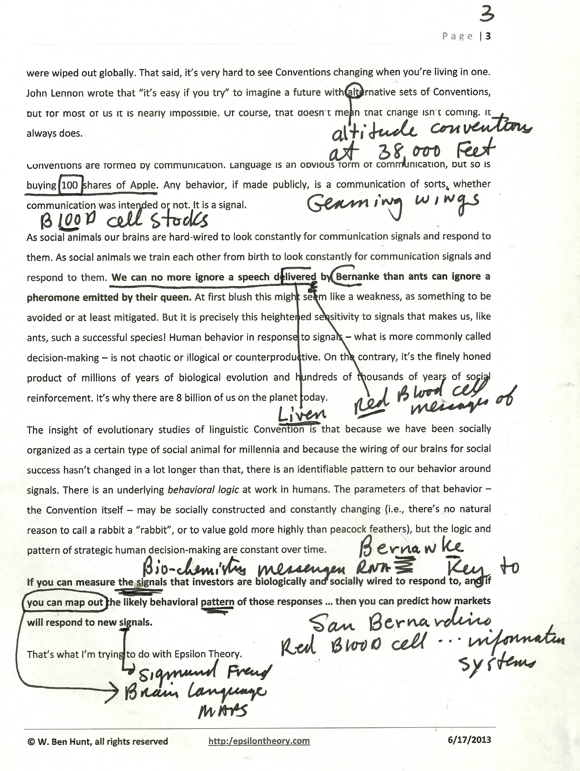 3
Page | 3
were wiped out globally. That said, it's very hard to see Conventions changing when you're living in one.
John Lennon wrote that "it's easy if you try" to imagine a future with alternative sets of Conventions,
but for most of us it is nearly impossible. Of course, that doesn't mean that change isn't coming. It
always does.
altitude conventions
at 38,000 Feet
Conventions are formed by communication. Language is an obvious form of communication, but so is
buying 100 shares of Apple. Any behavior, if made publicly, is a communication of sorts, whether
communication was intended or not. It is a signal.
Gearning wings
Bl00D cell Stocks
As social animals our brains are hard-wired to look constantly for communication signals and respond to
them. As social animals we train each other from birth to look constantly for communication signals and
respond to them. We can no more ignore a speech delivered by Bernanke than ants can ignore a
pheromone emitted by their queen. At first blush this might seem like a weakness, as something to be
avoided or at least mitigated. But it is precisely this heightened sensitivity to signals that makes us, like
ants, such a successful species! Human behavior in response to signals – what is more commonly called
decision-making – is not chaotic or illogical or counterproductive. On the contrary, it's the finely honed
product of millions of years of biological evolution and hundreds of thousands of years of social
reinforcement. It's why there are 8 billion of us on the planet today.
Liven
Red Blood cell
messages of
The insight of evolutionary studies of linguistic Convention is that because we have been socially
organized as a certain type of social animal for millennia and because the wiring of our brains for social
success hasn't changed in a lot longer than that, there is an identifiable pattern to our behavior around
signals. There is an underlying behavioral logic at work in humans. The parameters of that behavior –
the Convention itself – may be socially constructed and constantly changing (i.e., there's no natural
reason to call a rabbit a "rabbit", or to value gold more highly than peacock feathers), but the logic and
pattern of strategic human decision-making are constant over time.
Bernawke
Bio-chemistry messenger RNA Key to
If you can measure the signals that investors are biologically and socially wired to respond to, and if
you can map out the likely behavioral pattern of those responses … then you can predict how markets
will respond to new signals.
San Bernardino
Red Blood cell ... information
systems
That's what I'm trying to do with Epsilon Theory.
Sigmund Freud
Brain Language
MAPS
© W. Ben Hunt, all rights reserved http:/epsilontheory.com 6/17/2013